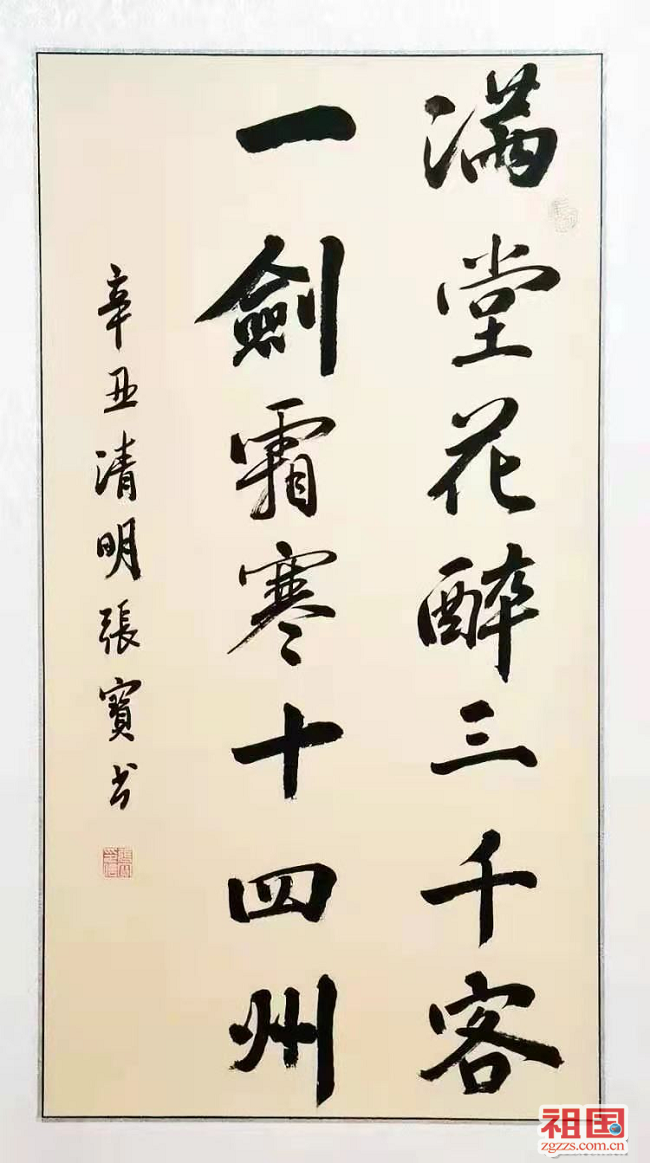 滿堂花醉三千客
一劍霜寒十四州
辛丑清明張寶书
祖国
zgzzs.com.cn